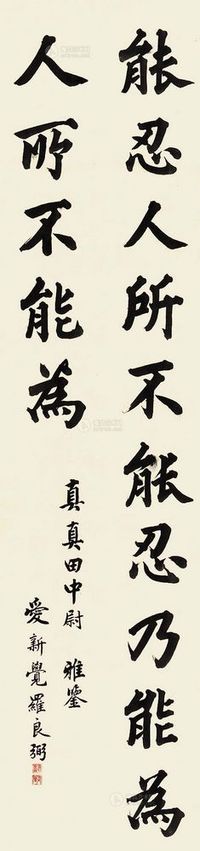 能忍人所不能忍乃能為
人所不能為
真真田中尉 雅鑒
愛新覺羅良弼